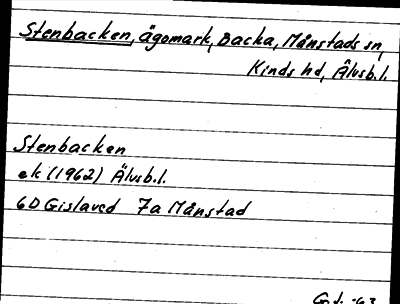 Stenbacken, ägomark, Backa, Månstads sn,
Kinds hd, Älvsb.l.
Stenbacken
ek (1962) Älvsb.l.
6D Gislaved 7a Månstad